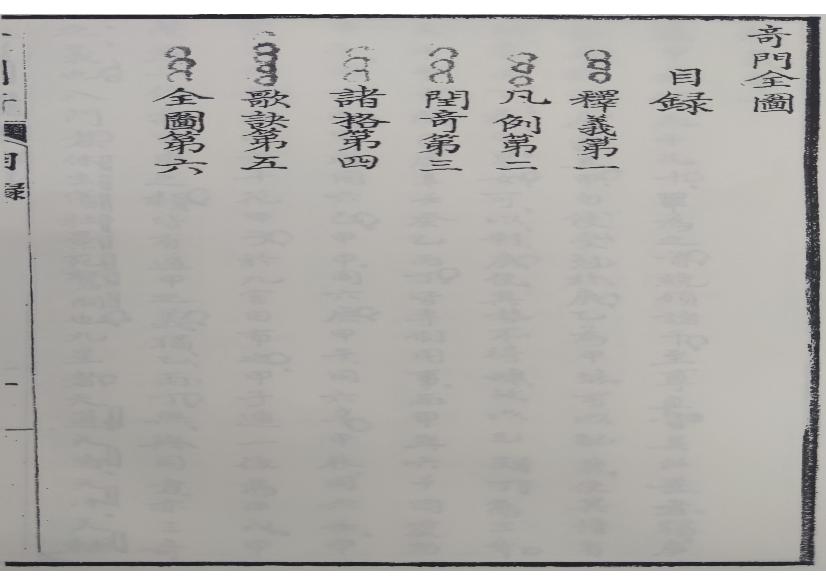 奇門全圖
目録
釋義第一
凡例第二
閏奇第三
諸格第四
歌訣第五
全圖第六
目録
一